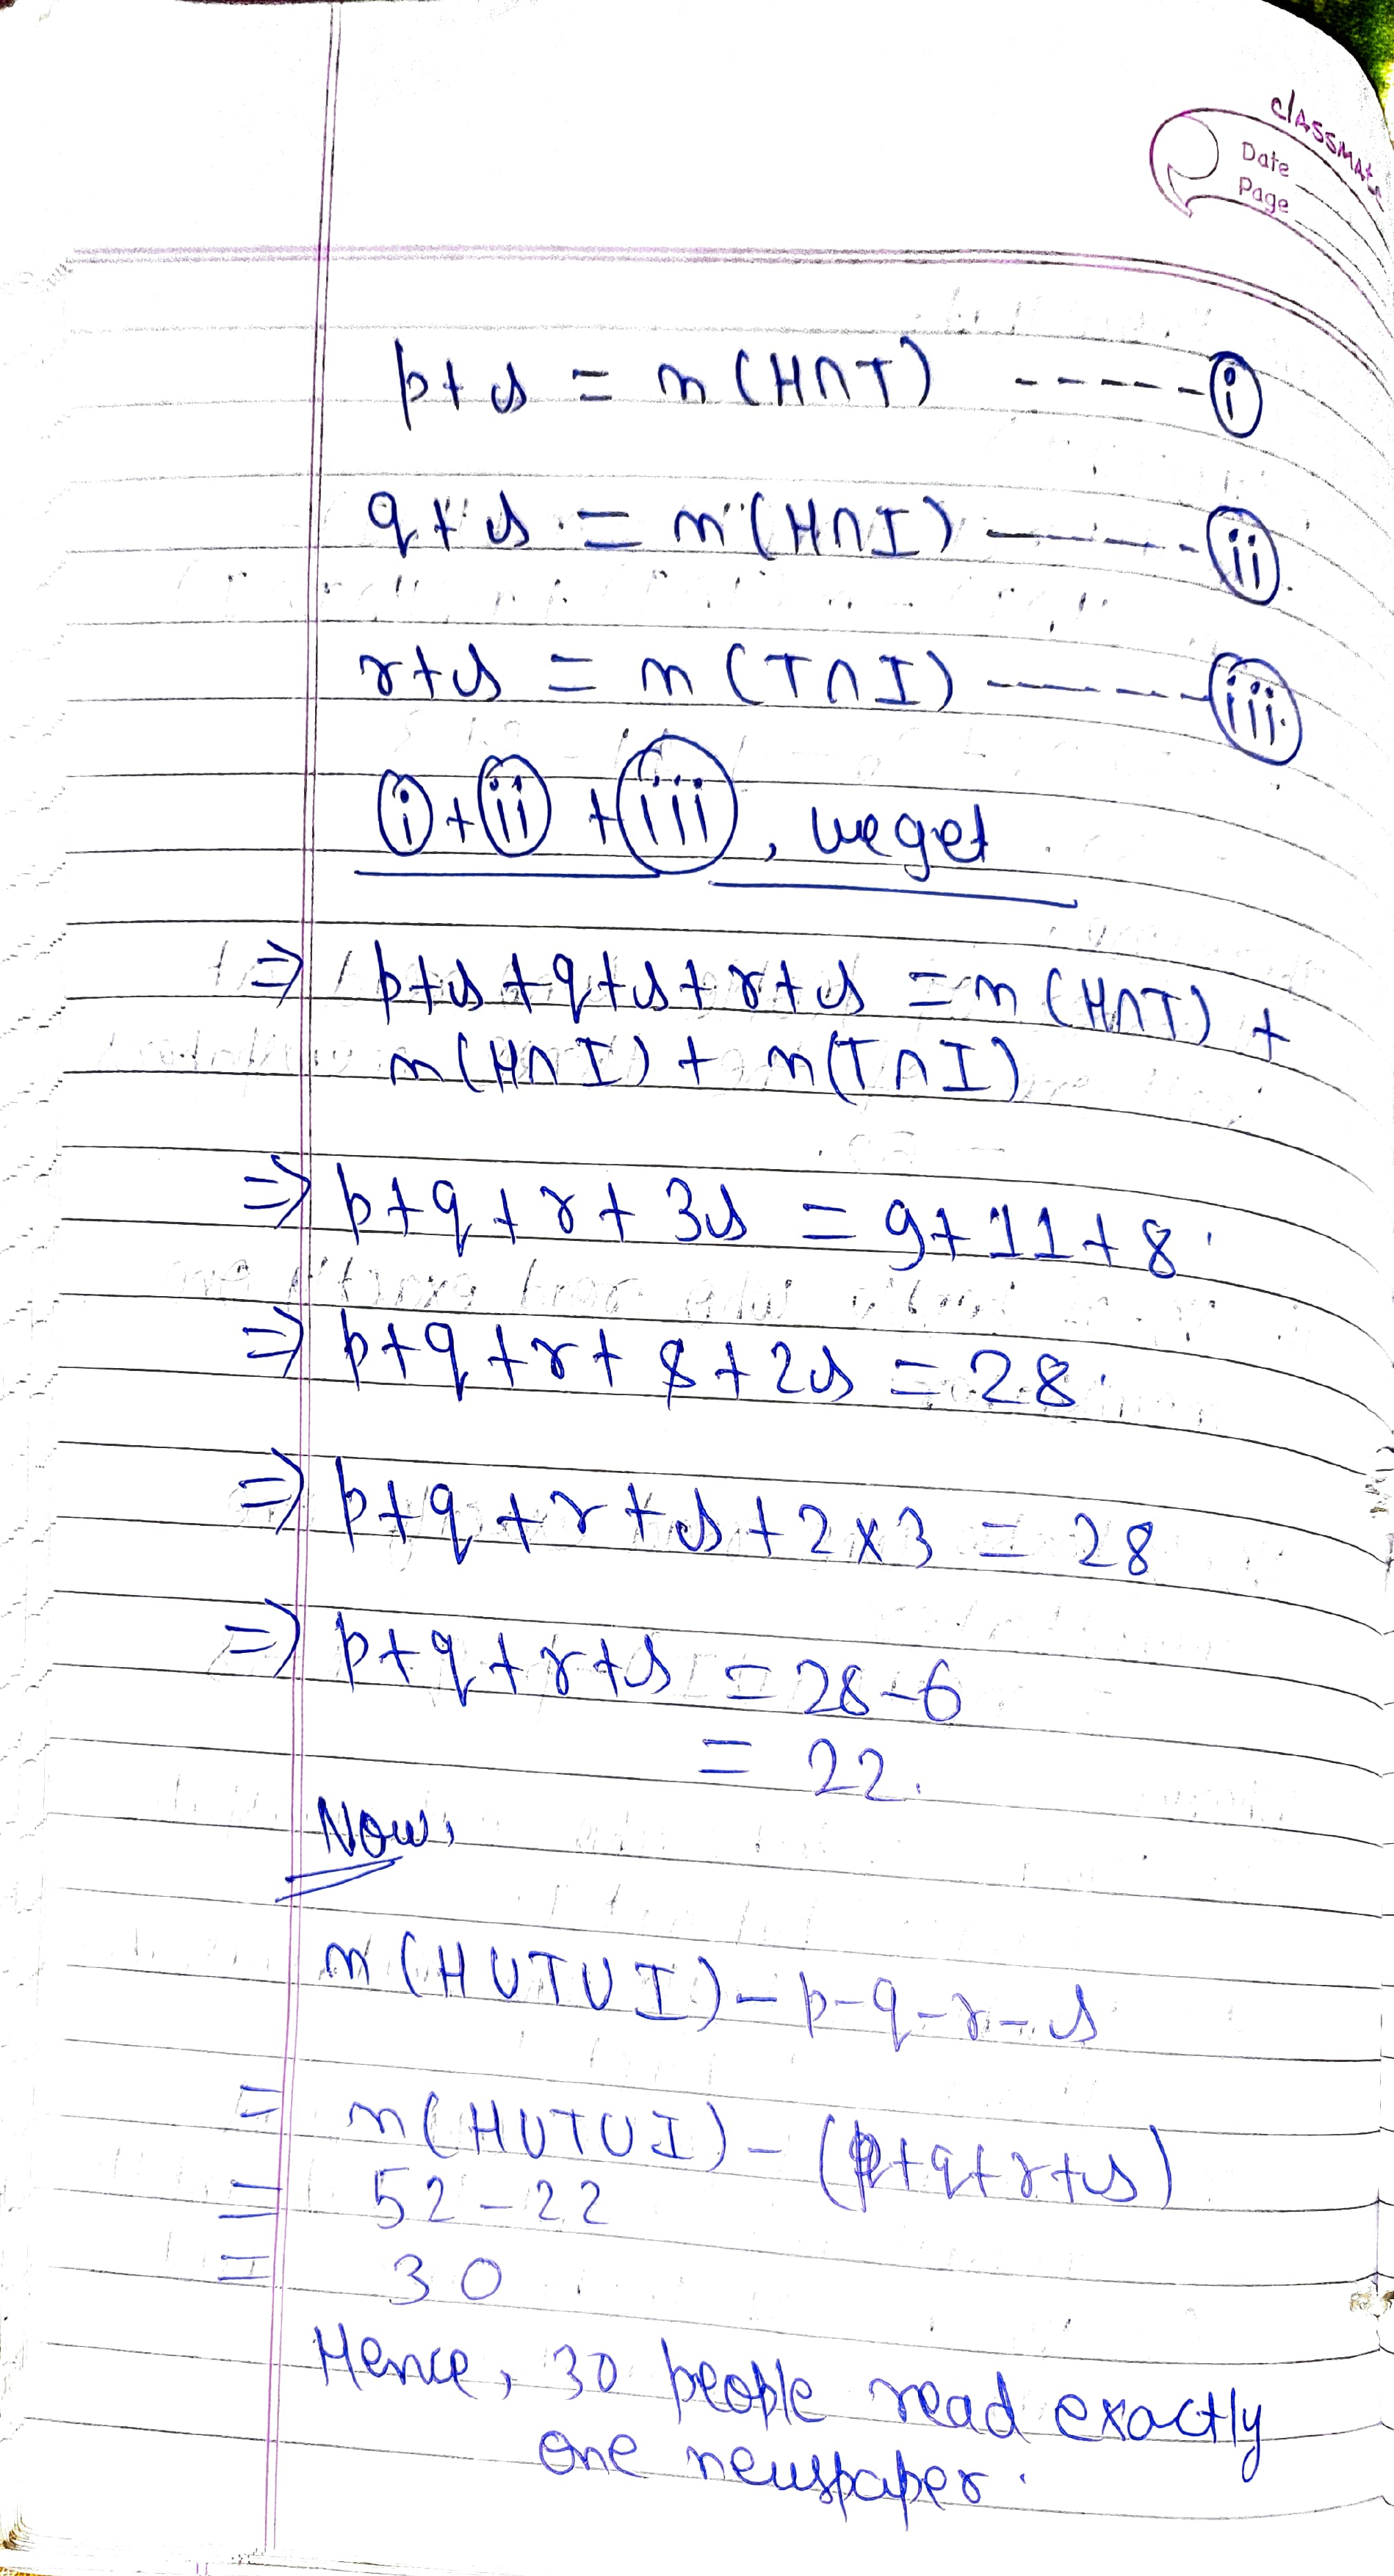 classmate
Date
Page
p+s = n(H∩T) ----- (i)
q+s = n(H∩I) ------ (ii)
r+s = n(T∩I) ------ (iii)
(i)+(ii)+(iii), we get
⇒ p+s+q+s+r+s = n(H∩T) +
n(H∩I) + n(T∩I)
⇒ p+q+r+3s = 9+11+8
⇒ p+q+r+s+2s = 28
⇒ p+q+r+s+2×3 = 28
⇒ p+q+r+s = 28-6
= 22.
Now,
n(HUTUI)-p-q-r-s
= n(HUTUI)-(p+q+r+s)
= 52-22
= 30
Hence, 30 people read exactly
one newspaper.